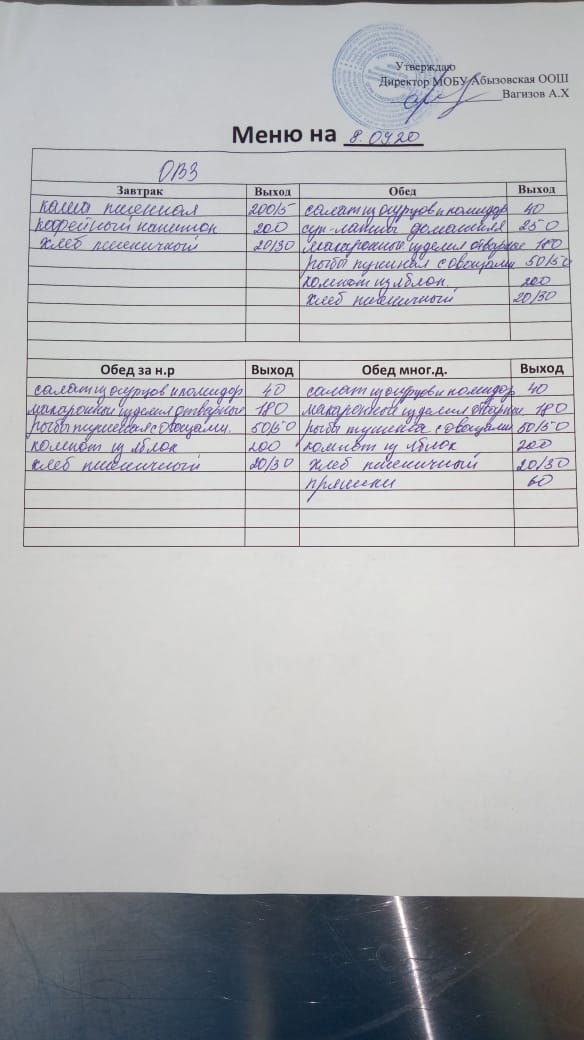 Утверждаю
Директор МОБУ Абызовская ООШ
Вагизов А.Х
Меню на 8.0920
ОВЗ
Завтрак Выход Обед Выход
каша пшенная 200/5 салат из огурцов и помидор 40
кофейный напиток 200 суп-лапша домашняя 250
хлеб пшеничный 20/30 макаронные изделия отварные 180
рыбы тушеная с овощами 50/50
компот из яблок. 200
хлеб пшеничный 20/30
Обед за н.р Выход Обед мног.д. Выход
салат из огурцов и помидор 40 салат из огурцов и помидор 40
макаронные изделия отварные 180 макаронные изделия отварные 180
рыбы тушеная с овощами. 50/50 рыбы тушеная с овощами 50/50
компот из яблок 200 компот из яблок 200
хлеб пшеничный 20/30 хлеб пшеничный 20/30
пряники 60